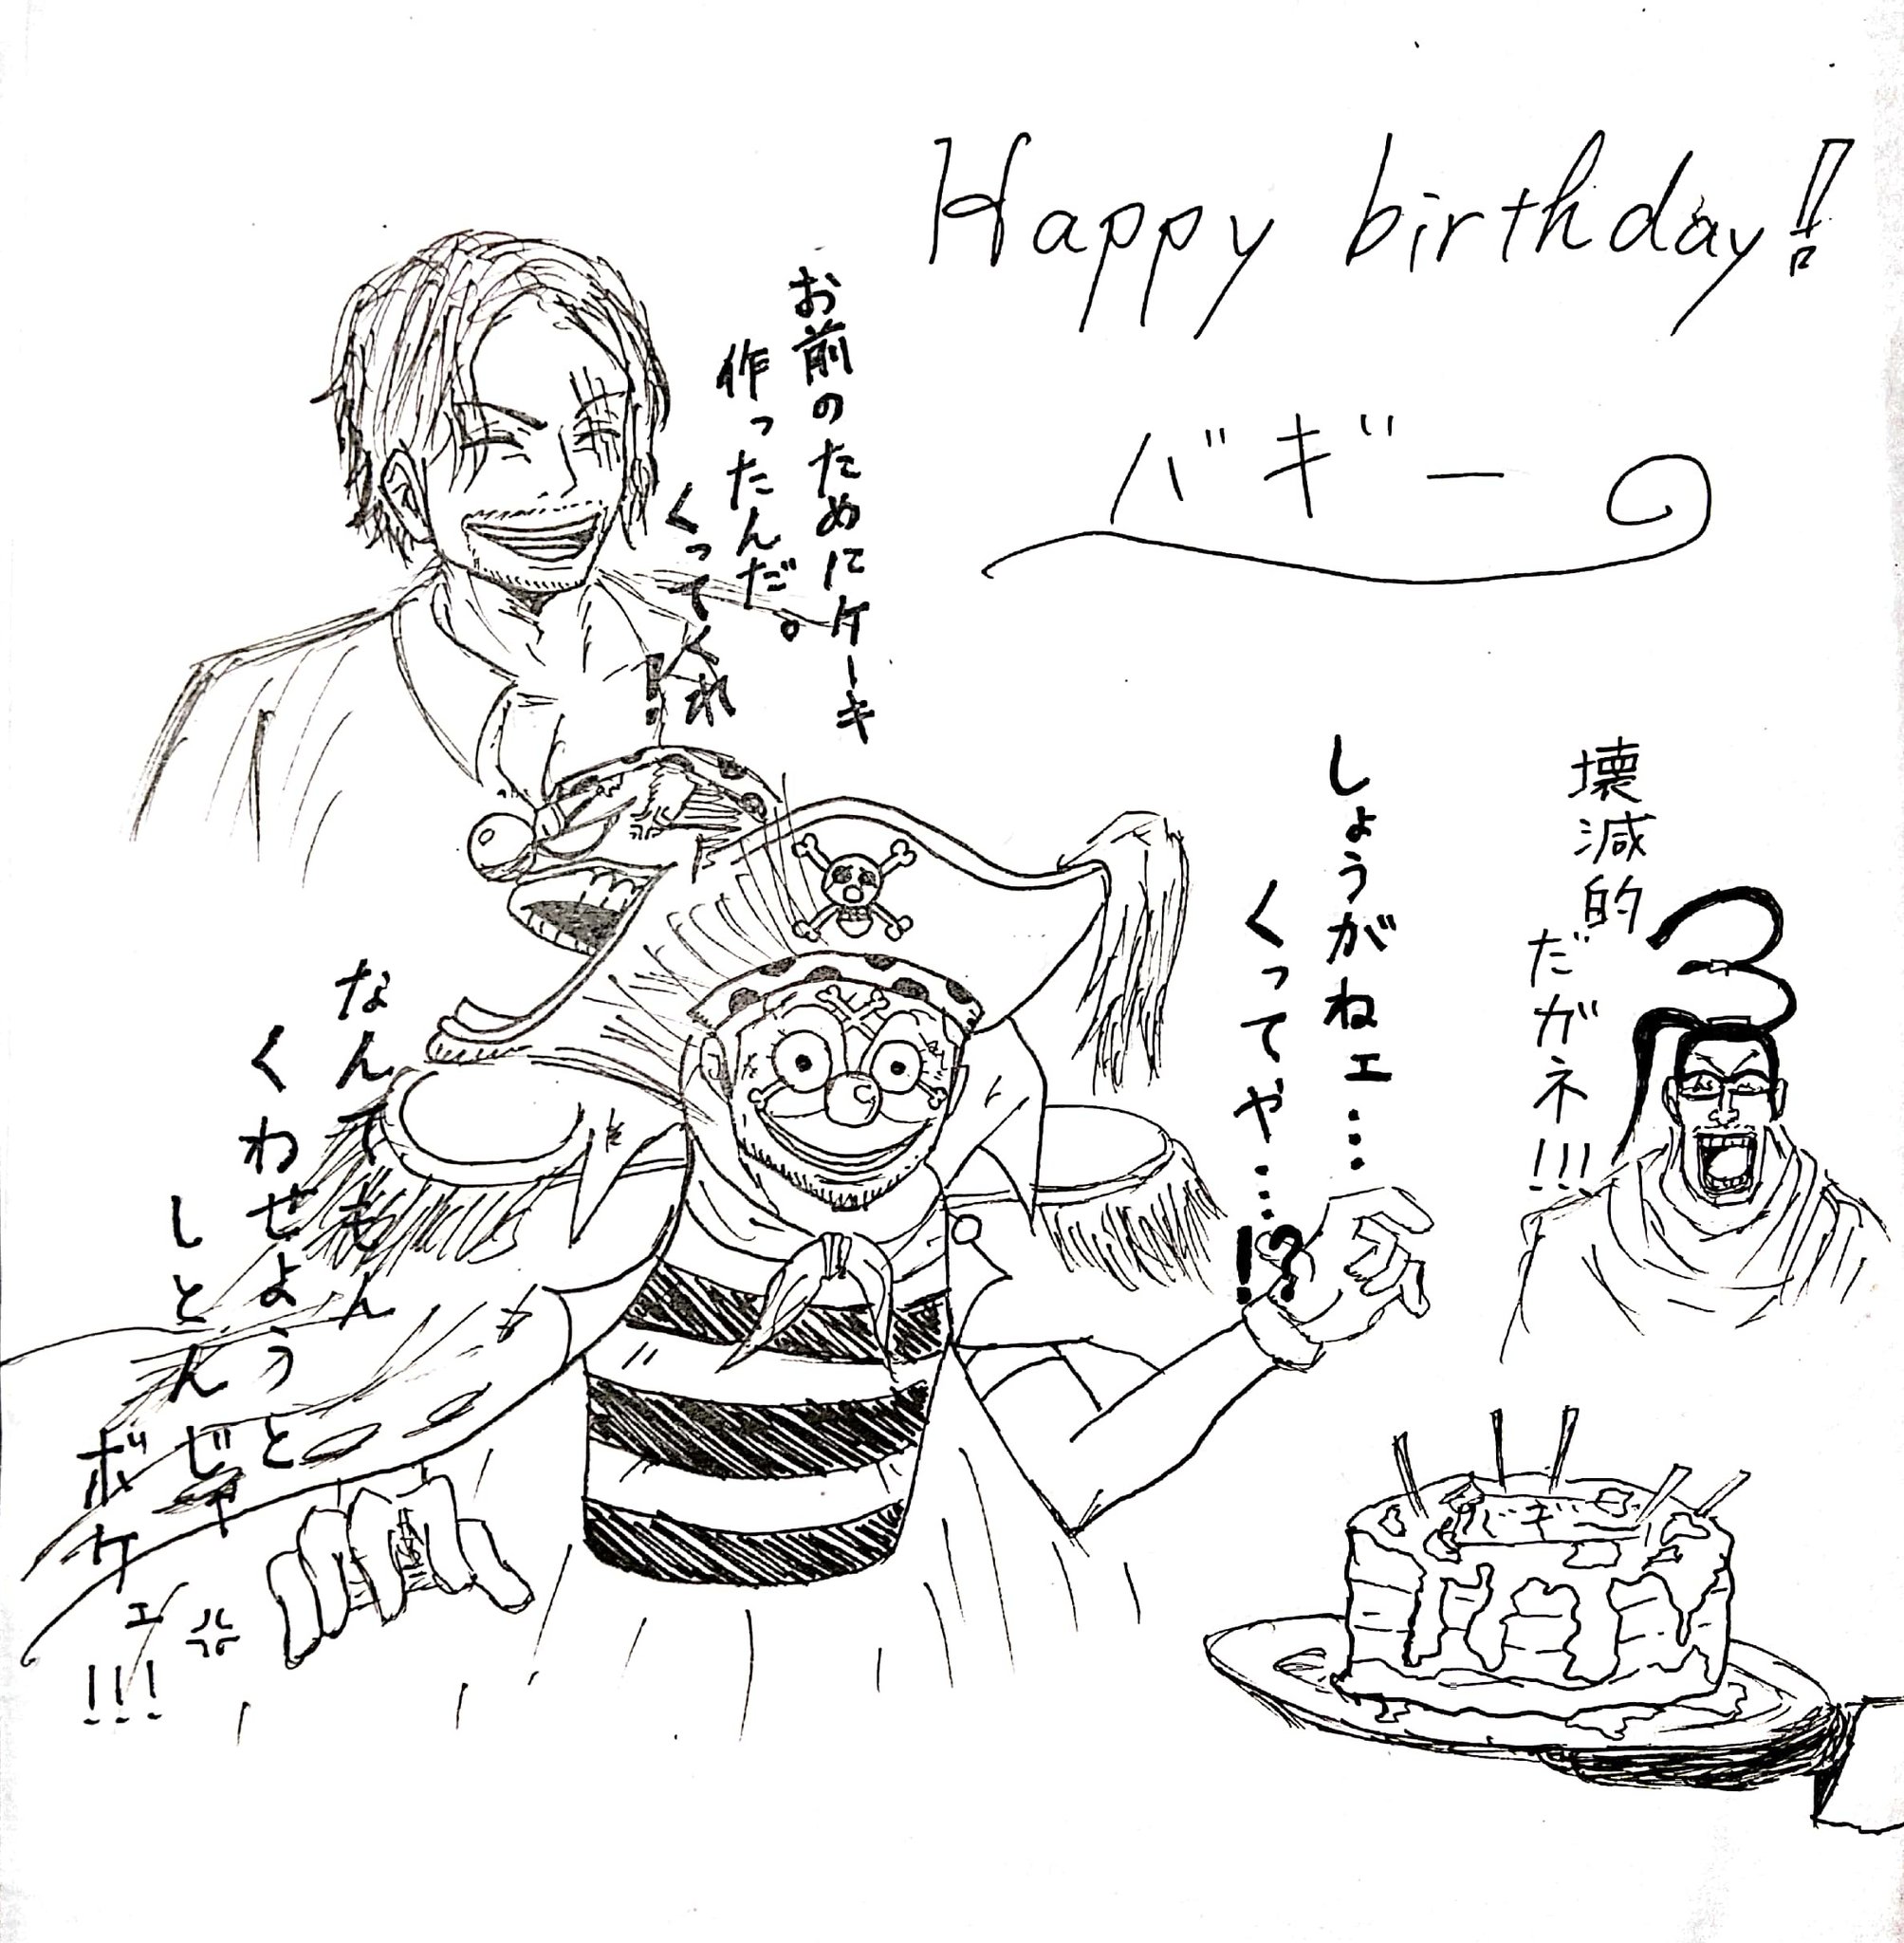 Happy birthday!
バギー
お前のためにケーキ
作ったんだ。
くってくれ!
壊滅的
だがネ!!!
しょうがねェ…
くってや…!?
なんてもん
くわせようと
しとんじゃ
ボケェ!!!
バギー